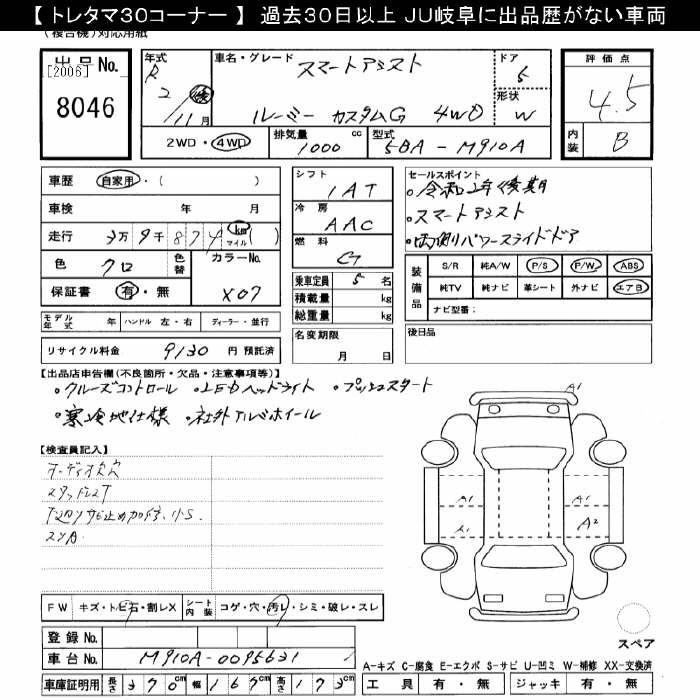 【 トレタマ30コーナー 】 過去30日以上 JU岐阜に出品歴がない車両
(複合機)対応用紙
出品No.
[2006]
8046
年式
R
2 後
11月
車名・グレード
スマートアシスト
ルーミー カスタムG 4WD
ドア
5
形状
W
評価点
4.5
内装
B
2WD・4WD
排気量 1000 cc
型式 5BA-M910A
車歴 自家用・( )
車検 年 月
走行 3万9千874 km マイル ( )
色 クロ
色替
カラーNo.
X07
保証書 有・無
モデル年式 年 ハンドル 左・右 ディーラー・並行
リサイクル料金 9130 円 預託済
シフト
IAT
冷房
AAC
燃料
G
乗車定員 5 名
積載量 kg
総重量 kg
名変期限
月 日
セールスポイント
。令和2年後期
。スマートアシスト
。両側パワースライドドア
装備品
S/R 純A/W P/S P/W ABS
純TV 純ナビ 革シート 外ナビ エアB
ナビ型番:
後日品
【出品店申告欄(不良箇所・欠品・注意事項等)】
。クルーズコントロール 。LEDヘッドライト 。プッシュスタート
。寒冷地仕様 。社外アルミホイール
【検査員記入】
オーディオ欠
スタッドレス
下廻りサビ止め加修、小S.
スソA
FW キズ・トビ石・割レX
シート内装 コゲ・穴・汚レ・シミ・破レ・スレ
登録No.
車台No. M910A-0095631
車庫証明用 長さ 370cm 幅 167cm 高さ 173cm
A1
A1
A1
A1
A2
スペア
A-キズ C-腐食 E-エクボ S-サビ U-凹ミ W-補修 XX-交換済
工具 有・無 ジャッキ 有・無